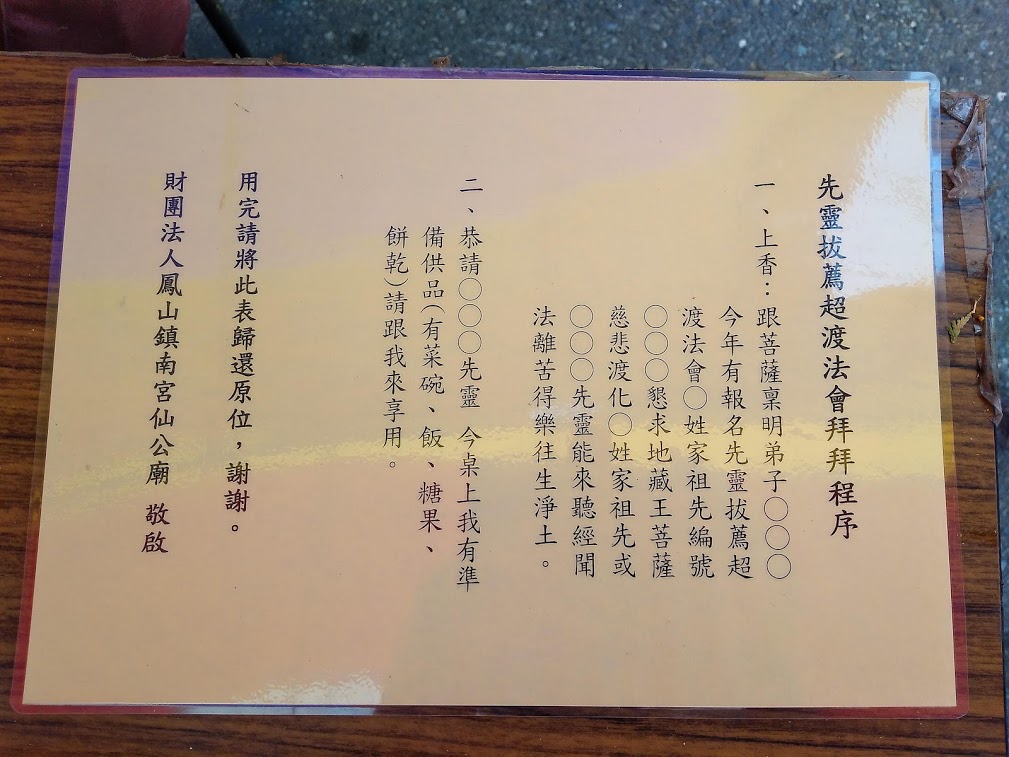 先靈拔薦超渡法會拜拜程序
一、上香：跟菩薩稟明弟子○○○
今年有報名先靈拔薦超
渡法會○姓家祖先編號
○○○懇求地藏王菩薩
慈悲渡化○姓家祖先或
○○○先靈能來聽經聞
法離苦得樂往生淨土。
二、恭請○○○先靈 今桌上我有準
備供品(有菜碗、飯、糖果、
餅乾)請跟我來享用。
用完請將此表歸還原位，謝謝。
財團法人鳳山鎮南宮仙公廟 敬啟